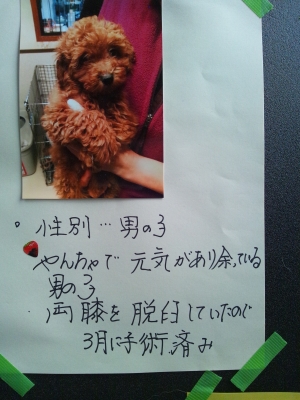 。性別…男の子
やんちゃで元気があり余っている
男の子
・両膝を脱臼していたので
3月に手術済み